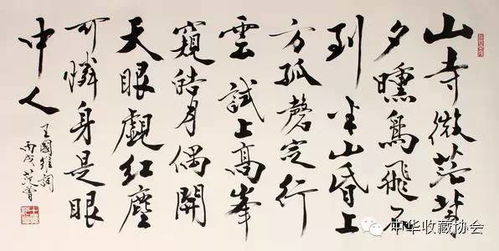 山寺微茫背
夕曛鳥飛不
到半山昏上
方孤磬定行
雲試上高峯
窺皓月偶開
天眼覷紅塵
可憐身是眼
中人
王國維詞
丙戌
中华收藏协会